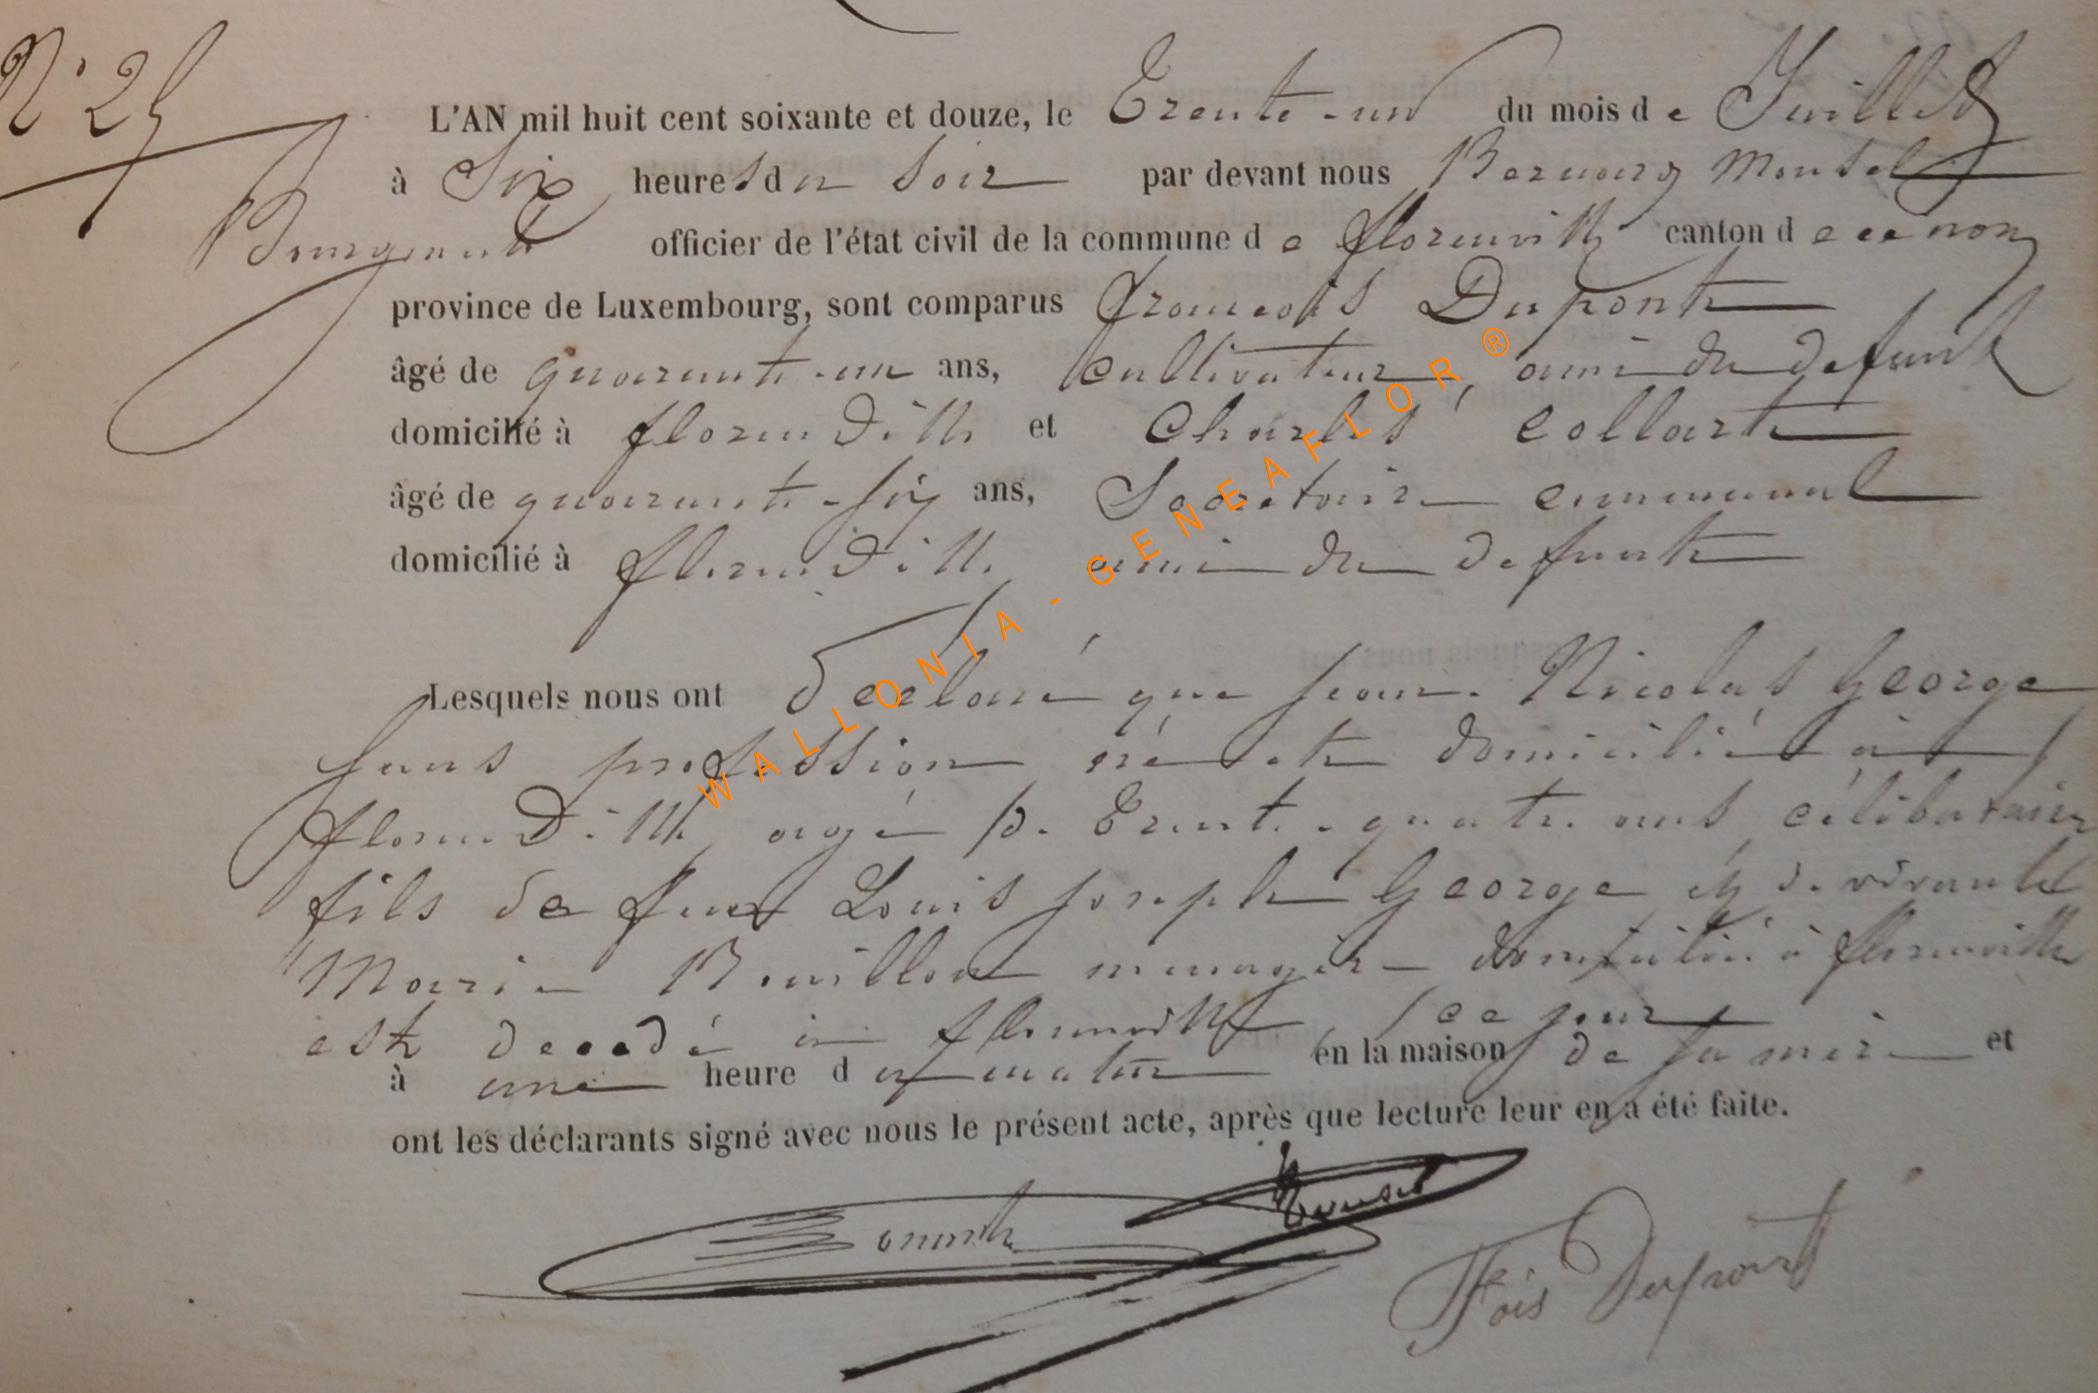 N° 25
L'AN mil huit cent soixante et douze, le Trente-un du mois de Juillet
à Six heures du Soir par devant nous Bernard Mansel
Bourgmestre officier de l'état civil de la commune de florenville canton de
province de Luxembourg, sont comparus françois Dupont
âgé de quarante-un ans, cultivateur, ami du defunt
domicilié à florenville et Charles Collart
âgé de quarante-six ans, Secretaire communal
domicilié à florenville ami du defunt
Lesquels nous ont declaré que Jean Nicolas George
sans profession né et domicilié à
florenville agé de Trente-quatre ans célibataire
fils de feu Louis Joseph George et de vivante
Marie Bouillon menagere domiciliée à florenville
est decedé à florenville, ce jour
à une heure du matin en la maison de sa mère et
ont les déclarants signé avec nous le présent acte, après que lecture leur en a été faite.
Fois Dupont
WALLONIA - GENEAFLOR ®